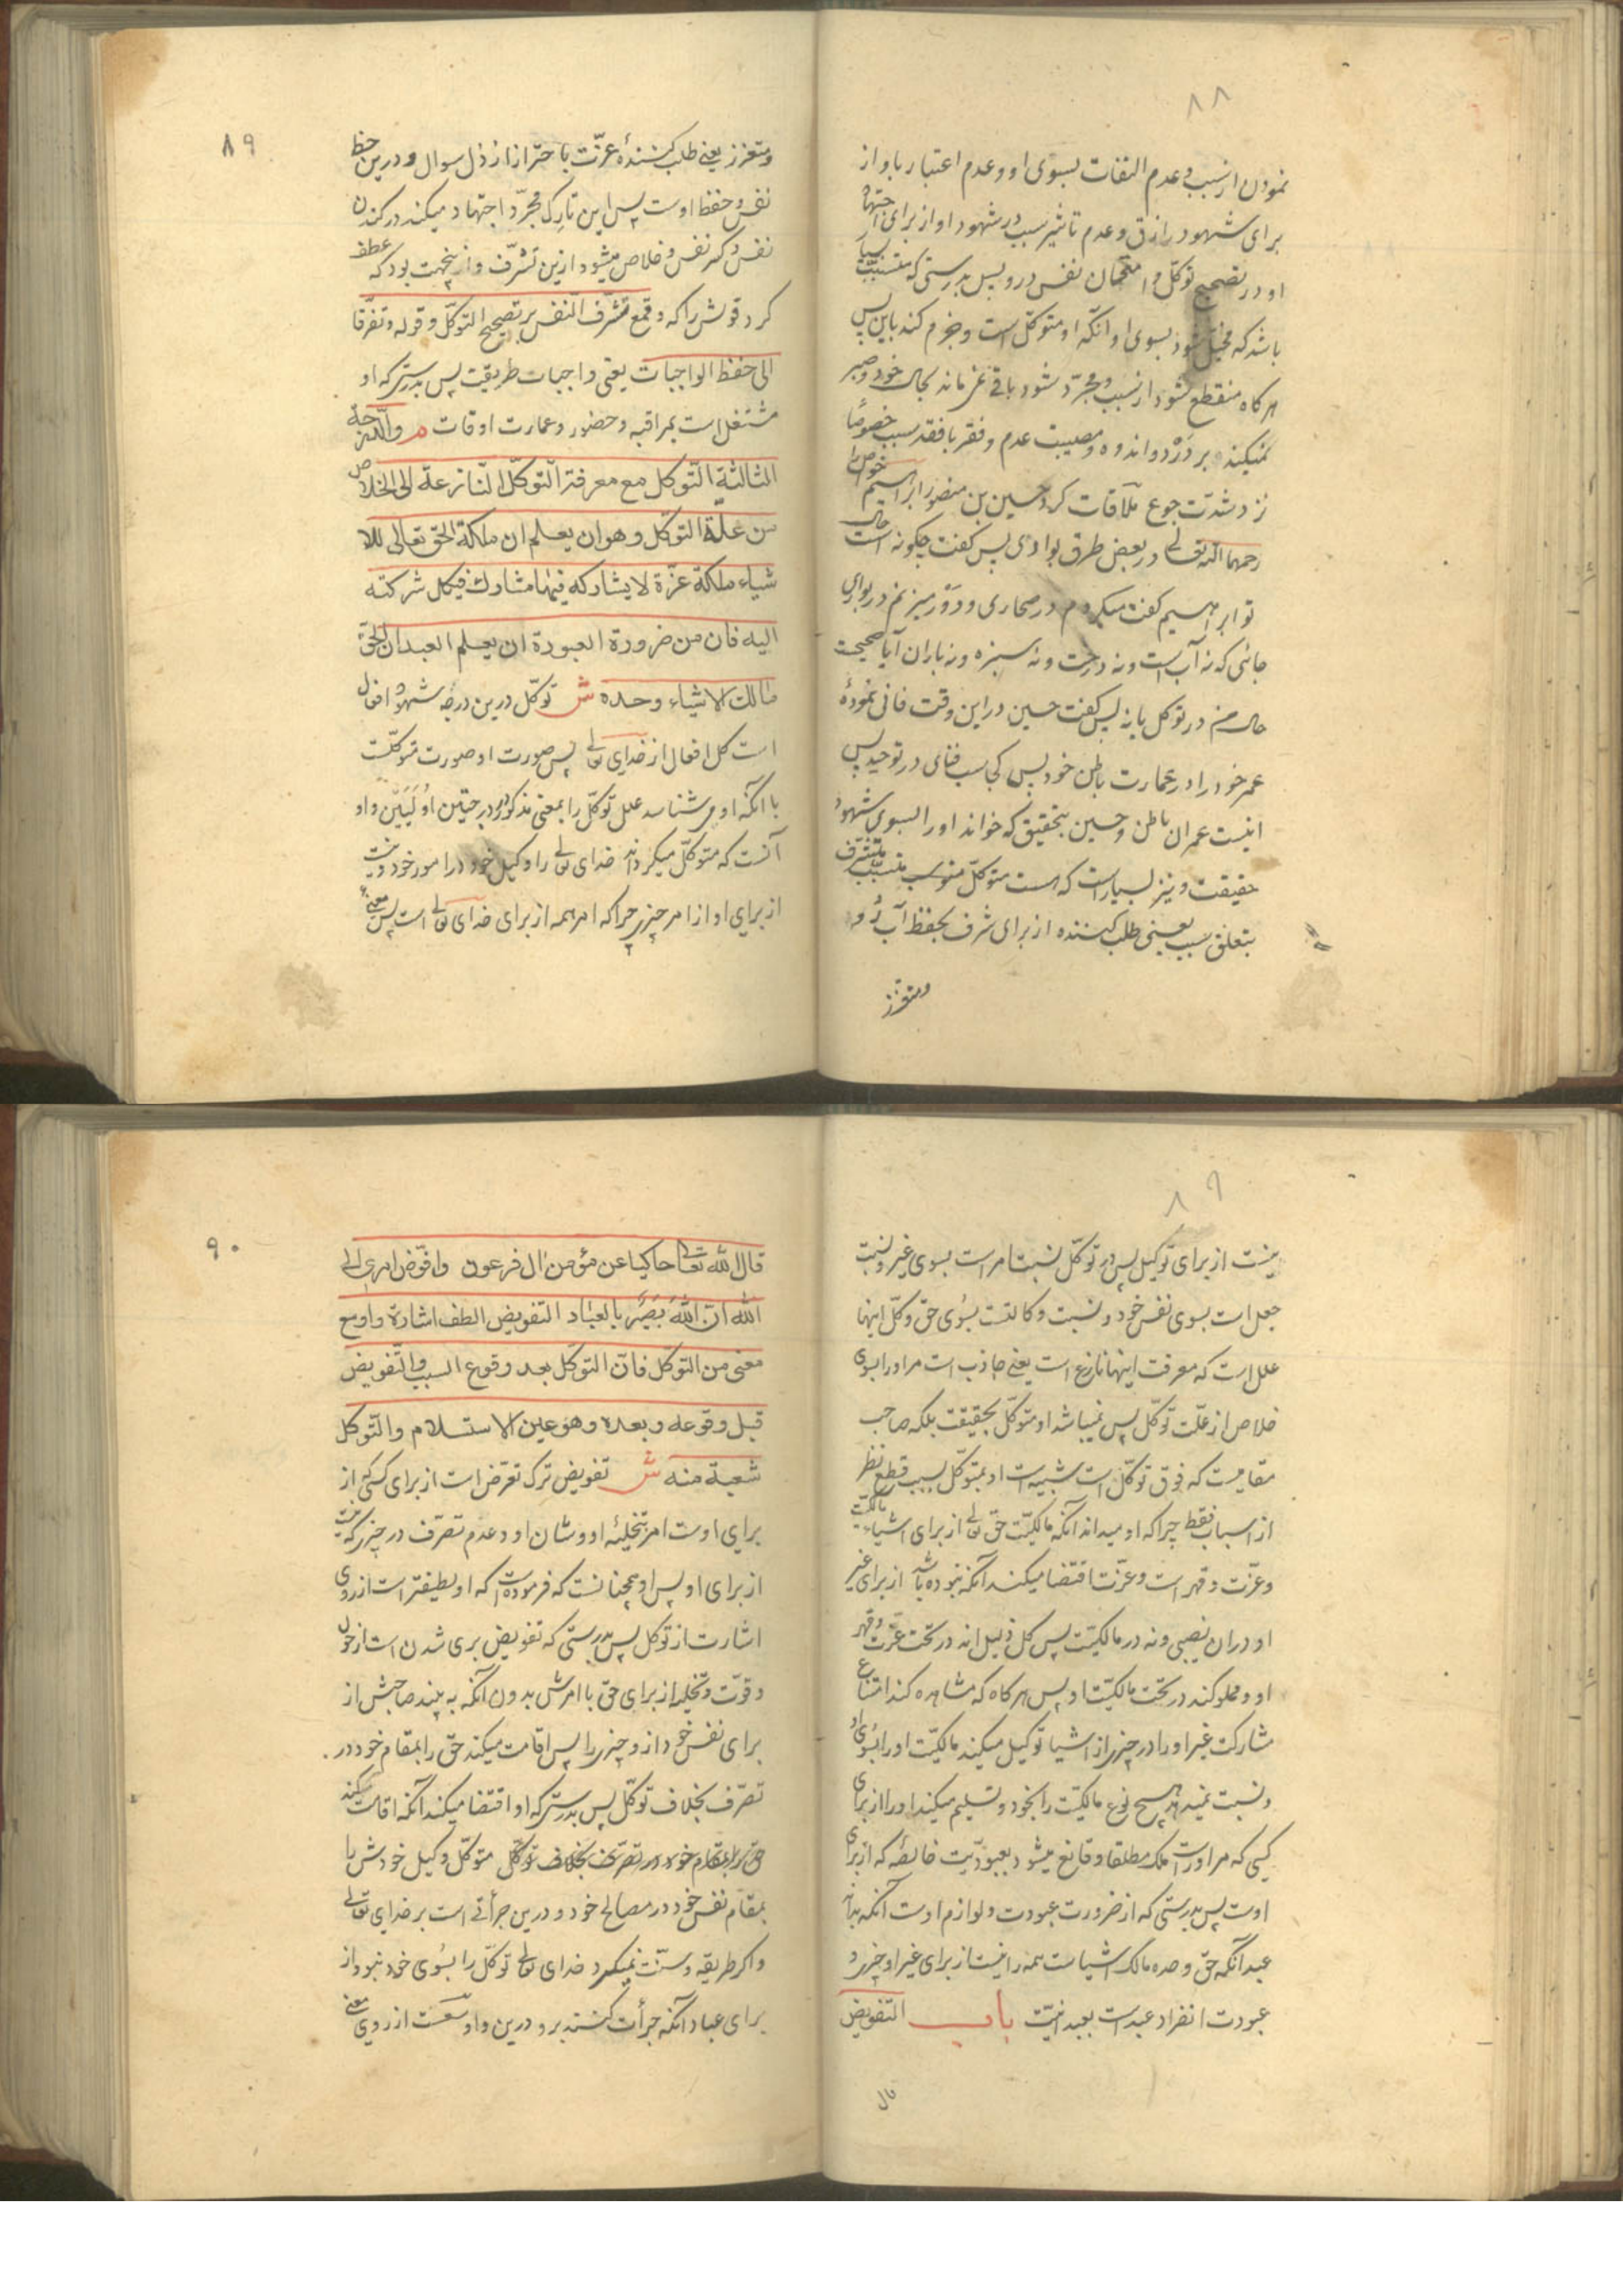 ۸۸
نمودن از سبب و عدم التفات بسوی او و عدم اعتبار باو از
برای شهود رازق و عدم تاثیر سبب در شهود او از برای اجتهاد
او در تصحیح توکّل و امتحان نفس در و پس بدرستی که متسبّب
باشد که مخیّل شود بسوی او انکّه او متوکّل است و جزم کند باین پس
هرکاه منقطع شود از سبب و مجرّد شود باقی نمی ماند بحال خود و صبر
نمیکند بر درد و اندوه و مصیبت عدم و فقر یا فقد سبب خصوصًا
نزد شدّت جوع ملاقات کرد حسین بن منصور ابراهیم خواص را
رحمهما الله تعالی در بعض طرق بوادی پس کفت چکونه است حال
تو ابراهیم کفت میکردم در صحاری و دَوْر میزنم در بوادی
جائی که نه آب است و نه درخت و نه سبزه و نه باران آیا صحیحست
حال من در توکل یا نه پس کفت حسین در این وقت فانی نمودهٔ
عمر خود را در عمارت باطن خود پس کجاست فنای در توحید پس
اینست عمران باطن و حسین بتحقیق که خواند او را بسوی شهود
حقیقت و نیز بسیار است که هست متوکّل متسبّب متشرّف
بتعلق سبب یعنی طلب کننده از برای شرف بحفظ آب رُو
و متعزّز
۸۹
و متعزز یعنی طلب کنندهٔ عزّت باحتراز از ذل سوال و درین حظ
نفس و حفظ اوست پس این تارک مجرّد اجتهاد میکند در کندن
نفس و کسر نفس و خلاص میشود ازین تشرّف و از ینجهت بود که عطف
کرد قولش را که و قمع تشرّف النفس بر تصحیح التوکّل و قوله و تفرّقا
الی حفظ الواجبات یعنی واجبات طریقت پس بدرستی که او
مشتغل است بمراقبه و حضور و عمارت اوقات م والدّرجة
الثالثة التّوکل مع معرفة التوکّل النّازعة الی الخلاص
من علّة التوکل وهو ان یعلم ان ملکة الحق تعالی للا
شیاء ملکة عزّة لا یشارکه فیها مشارک فیکل شرکته
الیه فان من ضرورة العبودة ان یعلم العبد ان الحقّ
مالک الاشیاء وحده ش توکّل درین درجه شهود افعال
است کل افعال از خدای تعالی پس صورت او صورت توکّلست
با انکه او می شناسد علل توکّل را بمعنی مذکور در درجتین اوُلَیَیّن و او
آنست که متوکّل میکرداند خدای تعالی را وکیل خود در امور خود و نیست
از برای او از امر چیزی چرا که امر همه از برای خدای تعالی است پس معنی
۸۹
نیست از برای توکیل پس در توکّل نسبت امر است بسوی غیر و نسبت
جعل است بسوی نفس خود و نسبت وکالتست بسُوی حق و کلّ اینها
علل است که معرفت اینها نازع است یعنی جاذب است مر او را بسوی
خلاص از علّت توکّل پس نمیباشد او متوکّل بحقیقت بلکه صاحب
مقامیست که فوق توکّل است شبیه است او بمتوکّل بسبب قطع نظر
از اسباب فقط چرا که او میداند آنکه مالکیّت حقّ تعالی از برای اشیاء مالکیّت
و عزّت و قهر است و عزّت اقتضا میکند آنکه نبوده باشد از برای غیر
او در ان نصیبی و نه در مالکیّت پس کل ذلیل اند در تحت عزّت و قهر
او و مملوکند در تحت مالکیّت او پس هرکاه که مشاهده کند امتناع
مشارکت غیر او را در چیزی از اشیا توکیل میکند مالکیّت او را بسُوی او
و نسبت نمیدهد هیچ نوع مالکیّت را بخود و تسلیم میکند او را از برای
کسی که مر او راست ملک مطلقا و قانع میشود بعبودیّت خالصه که از برای
اوست پس بدرستی که از ضرورت عبودت و لوازم اوست آنکه بداند
عبد آنکه حقّ وحده مالک اشیاست همه را نیست از برای غیر او چیزی و
عبودت انفراد عبد است بعبدانیّت باب التفویض
قال
۹۰
قال الله تعالی حاکیا عن مؤمن ال فرعون وافوّض امری الی
الله ان الله بَصِیرٌ بالعباد التفویض الطف اشارة واوسع
معنی من التوکل فانّ التوکل بعد وقوع السبب والتّفویض
قبل وقوعه وبعده وهو عین الاستسلام والتّوکل
شعبة منه ش تفویض ترک تعرّض است از برای کسی که از
برای اوست امر بتخلیهٔ او و شان او و عدم تصرّف در چیزی که نیست
از برای او پس او همچنانست که فرموده است که او لطیفتر است از روی
اشارت از توکل پس بدرستی که تفویض بری شدن است از حول
و قوّت و تخلیه از برای حق با امرش بدون انکه به بیند صاحبش از
برای نفس خود از و چیزی را پس اقامت میکند حق را بمقام خود در
تصرّف بخلاف توکّل پس بدرستی که او اقتضا میکند آنکه اقامت کند
حق را بمقام خود در تصرّف بخلاف توکّل متوکّل وکیل خودش را
بمقام نفس خود در مصالح خود و درین جرأتی است بر خدای تعالی
و اکر طریقه و سنّت نمیکرد خدای تعالی توکّل را بسُوی خود نبود از
برای عباد آنکه جرأت کنند برو درین و اوسعست از روی معنی